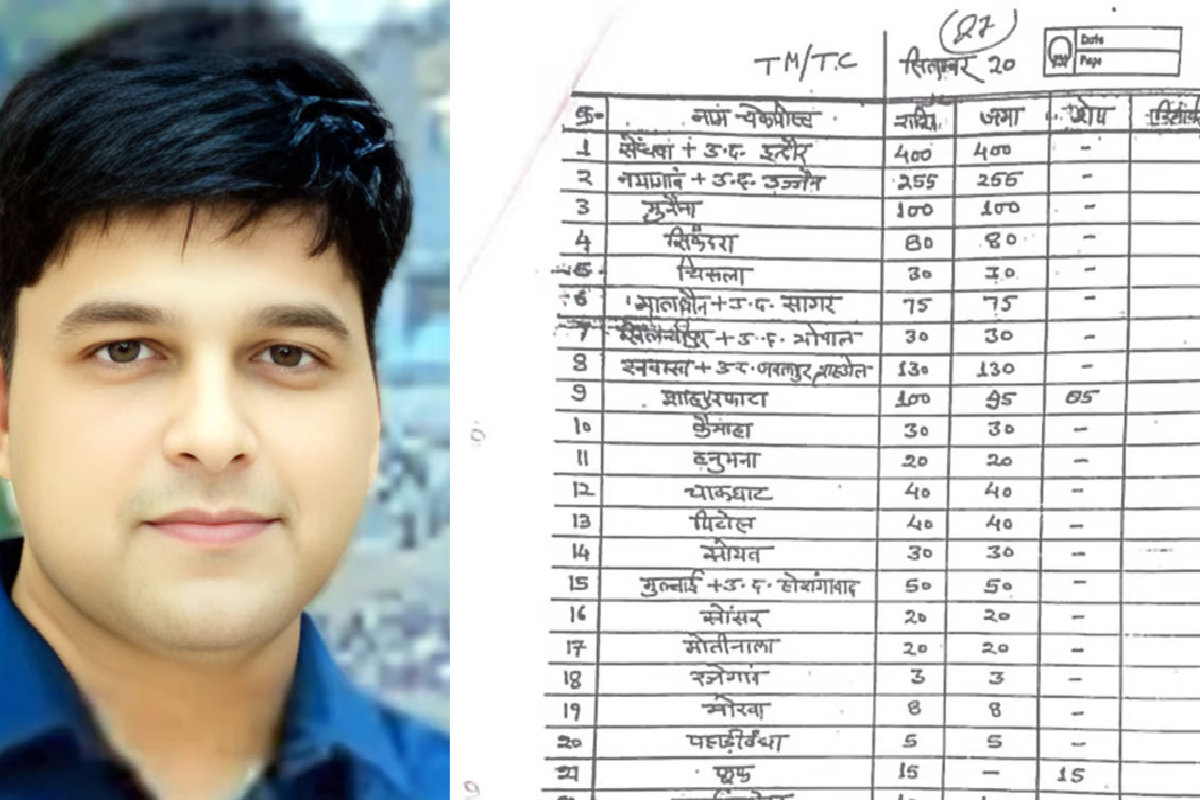 27
TM/TC सितम्बर 20
Date
Page
क्र. नाम चेकपोस्ट राशि जमा शेष
1 सेंधवा + उ.द. इन्दौर 400 400 -
2 नयागांव + उ.द. उज्जैन 255 255 -
3 मुरैना 100 100 -
4 सिकंदरा 80 80 -
5 चिरूला 30 30 -
6 मालथौन + उ.द. सागर 75 75 -
7 खिलचीपुर + उ.द. भोपाल 30 30 -
8 खवासा + उ.द. जबलपुर 130 130 -
9 शाहपुरफाटा 100 95 05
10 कैमाहा 30 30 -
11 हनुमना 20 20 -
12 चाकघाट 40 40 -
13 पिटोल 40 40 -
14 सोयत 30 30 -
15 मुलताई + उ.द. होशंगाबाद 50 50 -
16 सौंसर 20 20 -
17 मोतीनाला 20 20 -
18 रजेगांव 3 3 -
19 मोरवा 8 8 -
20 पहाड़ीबंधा 5 5 -
21 फूफ 15 - 15